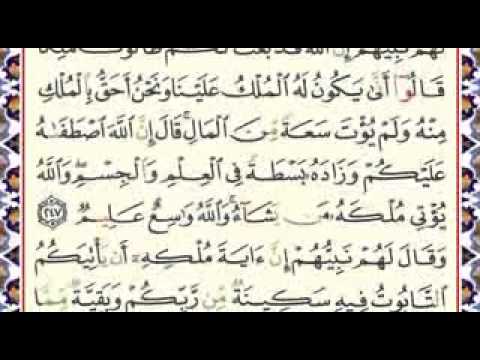 لَهُمْ نَبِيُّهُمْ إِنَّ ٱللَّهَ قَدْ بَعَثَ لَكُمْ طَالُوتَ مَلِكًا
قَالُوٓا۟ أَنَّىٰ يَكُونُ لَهُ ٱلْمُلْكُ عَلَيْنَا وَنَحْنُ أَحَقُّ بِٱلْمُلْكِ
مِنْهُ وَلَمْ يُؤْتَ سَعَةً مِّنَ ٱلْمَالِ ۚ قَالَ إِنَّ ٱللَّهَ ٱصْطَفَىٰهُ
عَلَيْكُمْ وَزَادَهُۥ بَسْطَةً فِى ٱلْعِلْمِ وَٱلْجِسْمِ ۖ وَٱللَّهُ
يُؤْتِى مُلْكَهُۥ مَن يَشَآءُ ۚ وَٱللَّهُ وَٰسِعٌ عَلِيمٌ ٢٤٧
وَقَالَ لَهُمْ نَبِيُّهُمْ إِنَّ ءَايَةَ مُلْكِهِۦٓ أَن يَأْتِيَكُمُ
ٱلتَّابُوتُ فِيهِ سَكِينَةٌ مِّن رَّبِّكُمْ وَبَقِيَّةٌ مِّمَّا